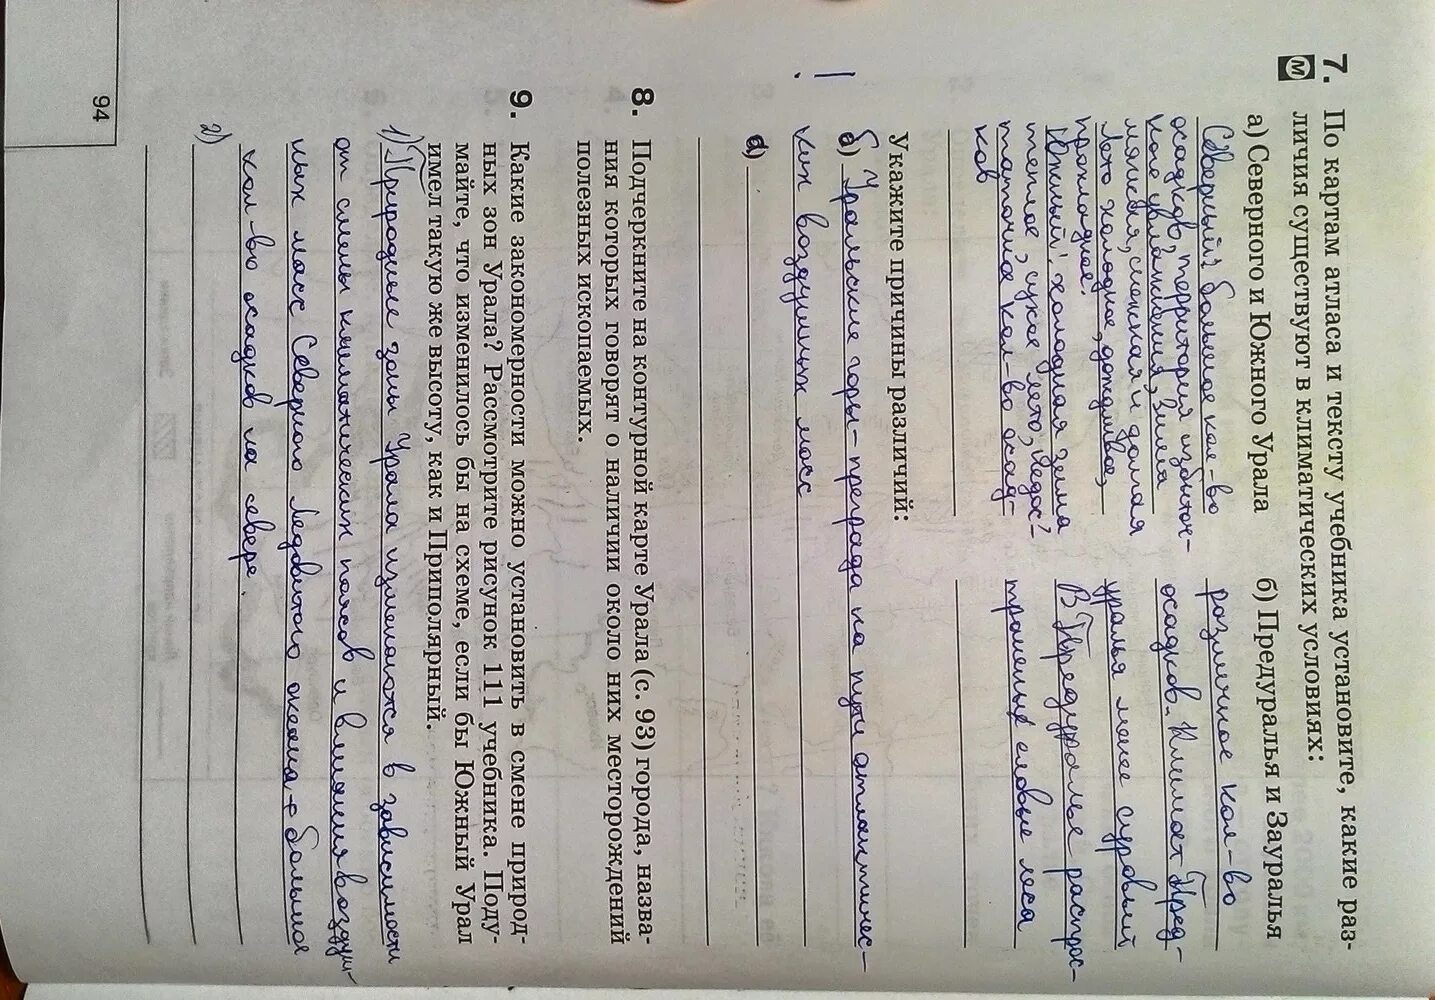 7. По картам атласа и тексту учебника установите, какие раз-
М личия существуют в климатических условиях:
а) Северного и Южного Урала
Северный: большое кол-во
осадков, территория избыточ-
ного увлажнения, зима
снежная и долгая
Лето холодное, дождливое,
прохладное.
Южный: холодная зима
теплое, сухое лето, недос-
таточна кол-во осад-
ков
б) Предуралья и Зауралья
различное кол-во
осадков. Климат Пред-
уралья менее суровый
В Предуралье распрос-
транены еловые леса
Укажите причины различий:
б) Уральские горы-преграда на пути атлантичес-
ких воздушных масс
8. Подчеркните на контурной карте Урала (с. 93) города, назва-
ния которых говорят о наличии около них месторождений
полезных ископаемых.
9. Какие закономерности можно установить в смене природ-
ных зон Урала? Рассмотрите рисунок 111 учебника. Поду-
майте, что изменилось бы на схеме, если бы Южный Урал
имел такую же высоту, как и Приполярный.
1) Природные зоны Урала изменяются в зависимости
от смены климатических поясов и влияния воздуш-
ных масс Северного Ледовитого океана - большое
кол-во осадков на севере.
2)
94